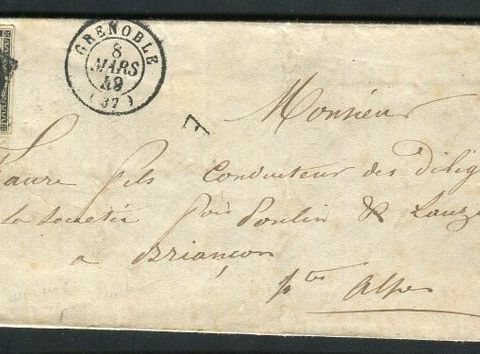 GRENOBLE
8
MARS
49
(37)
7
Monsieur
Faure fils Conducteur des Dilig
la Societée
à Briançon
htes Alpes